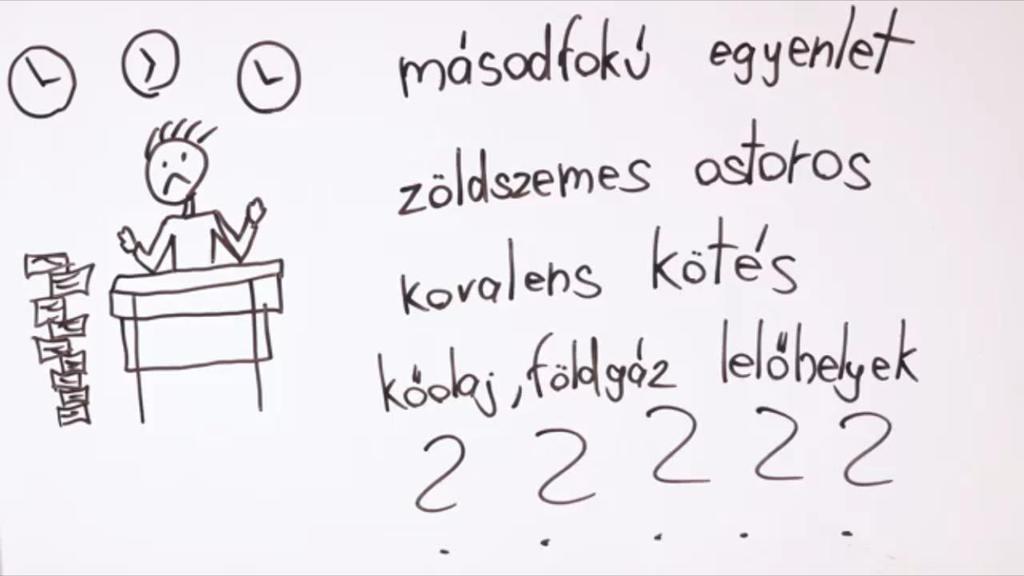 másodfokú egyenlet
zöldszemes ostoros
kovalens kötés
kőolaj, földgáz lelőhelyek
? ? ? ? ?